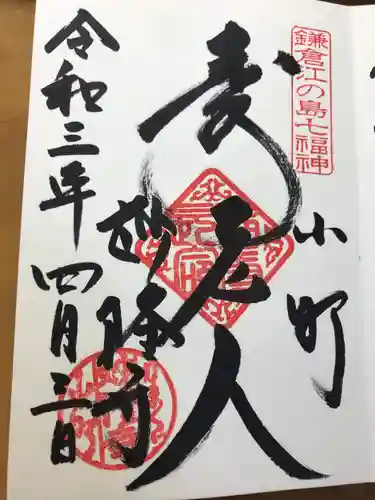 鎌倉江の島七福神
小町
寿老人
妙隆寺
令和三年四月三日